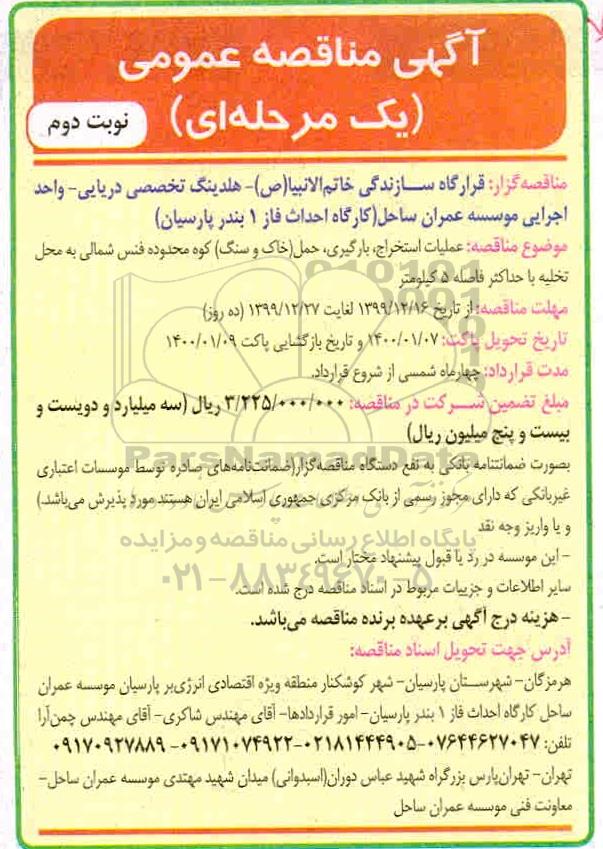 آگهی مناقصه عمومی
(یک مرحله‌ای)
نوبت دوم
مناقصه‌گزار: قرارگاه سازندگی خاتم‌الانبیا(ص)- هلدینگ تخصصی دریایی- واحد
اجرایی موسسه عمران ساحل(کارگاه احداث فاز ۱ بندر پارسیان)
موضوع مناقصه: عملیات استخراج، بارگیری، حمل(خاک و سنگ) کوه محدوده فنس شمالی به محل
تخلیه با حداکثر فاصله ۵ کیلومتر
مهلت مناقصه: از تاریخ ۱۳۹۹/۱۲/۱۶ لغایت ۱۳۹۹/۱۲/۲۷ (ده روز)
تاریخ تحویل پاکت: ۱۴۰۰/۰۱/۰۷ و تاریخ بازگشایی پاکت ۱۴۰۰/۰۱/۰۹
مدت قرارداد: چهارماه شمسی از شروع قرارداد.
مبلغ تضمین شرکت در مناقصه: ۳/۲۲۵/۰۰۰/۰۰۰ ریال (سه میلیارد و دویست و
بیست و پنج میلیون ریال)
بصورت ضمانتنامه بانکی به نفع دستگاه مناقصه‌گزار(ضمانت‌نامه‌های صادره توسط موسسات اعتباری
غیربانکی که دارای مجوز رسمی از بانک مرکزی جمهوری اسلامی ایران هستند مورد پذیرش می‌باشد.)
و یا واریز وجه نقد
- این موسسه در رد یا قبول پیشنهاد مختار است.
سایر اطلاعات و جزییات مربوط در اسناد مناقصه درج شده است.
- هزینه درج آگهی برعهده برنده مناقصه می‌باشد.
آدرس جهت تحویل اسناد مناقصه:
هرمزگان- شهرستان پارسیان- شهر کوشکنار منطقه ویژه اقتصادی انرژی‌بر پارسیان موسسه عمران
ساحل کارگاه احداث فاز ۱ بندر پارسیان- امور قراردادها- آقای مهندس شاکری- آقای مهندس چمن‌آرا
تلفن: ۰۷۶۴۴۶۲۷۰۴۷-۰۲۱۸۱۴۴۴۹۰۵-۰۹۱۷۱۰۷۴۹۲۲-۰۹۱۷۰۹۲۷۸۸۹
تهران- تهران‌پارس بزرگراه شهید عباس دوران(اسبدوانی) میدان شهید مهتدی موسسه عمران ساحل-
معاونت فنی موسسه عمران ساحل
ParsNamadData
پایگاه اطلاع رسانی مناقصه و مزایده
۰۲۱-۸۸۳۴۹۶۷۰-۵